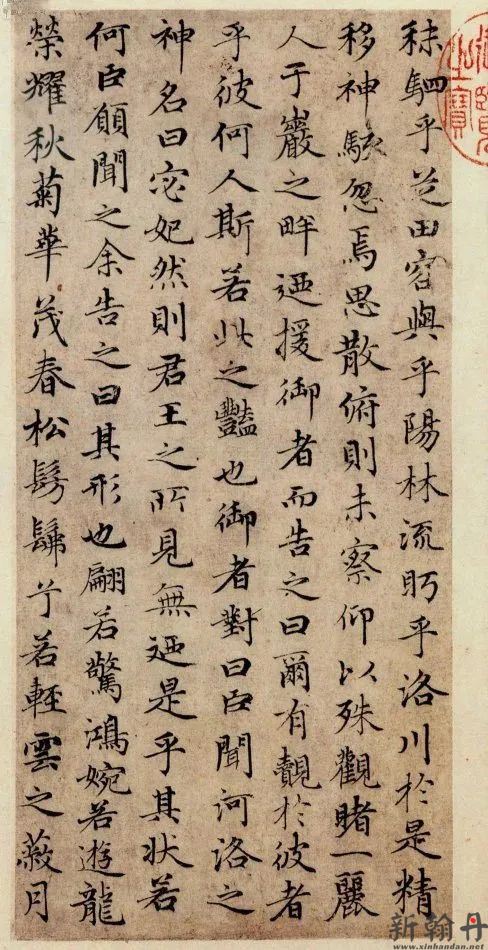 秣駟乎芝田容與乎陽林流眄乎洛川於是精
移神駭忽焉思散俯則未察仰以殊觀睹一麗
人于巖之畔迺援御者而告之曰爾有覿於彼者
乎彼何人斯若此之豔也御者對曰臣聞河洛之
神名曰宓妃然則君王之所見無迺是乎其狀若
何臣願聞之余告之曰其形也翩若驚鴻婉若遊龍
榮耀秋菊華茂春松髣髴兮若輕雲之蔽月
之寶
新翰丹
www.xinhandan.net